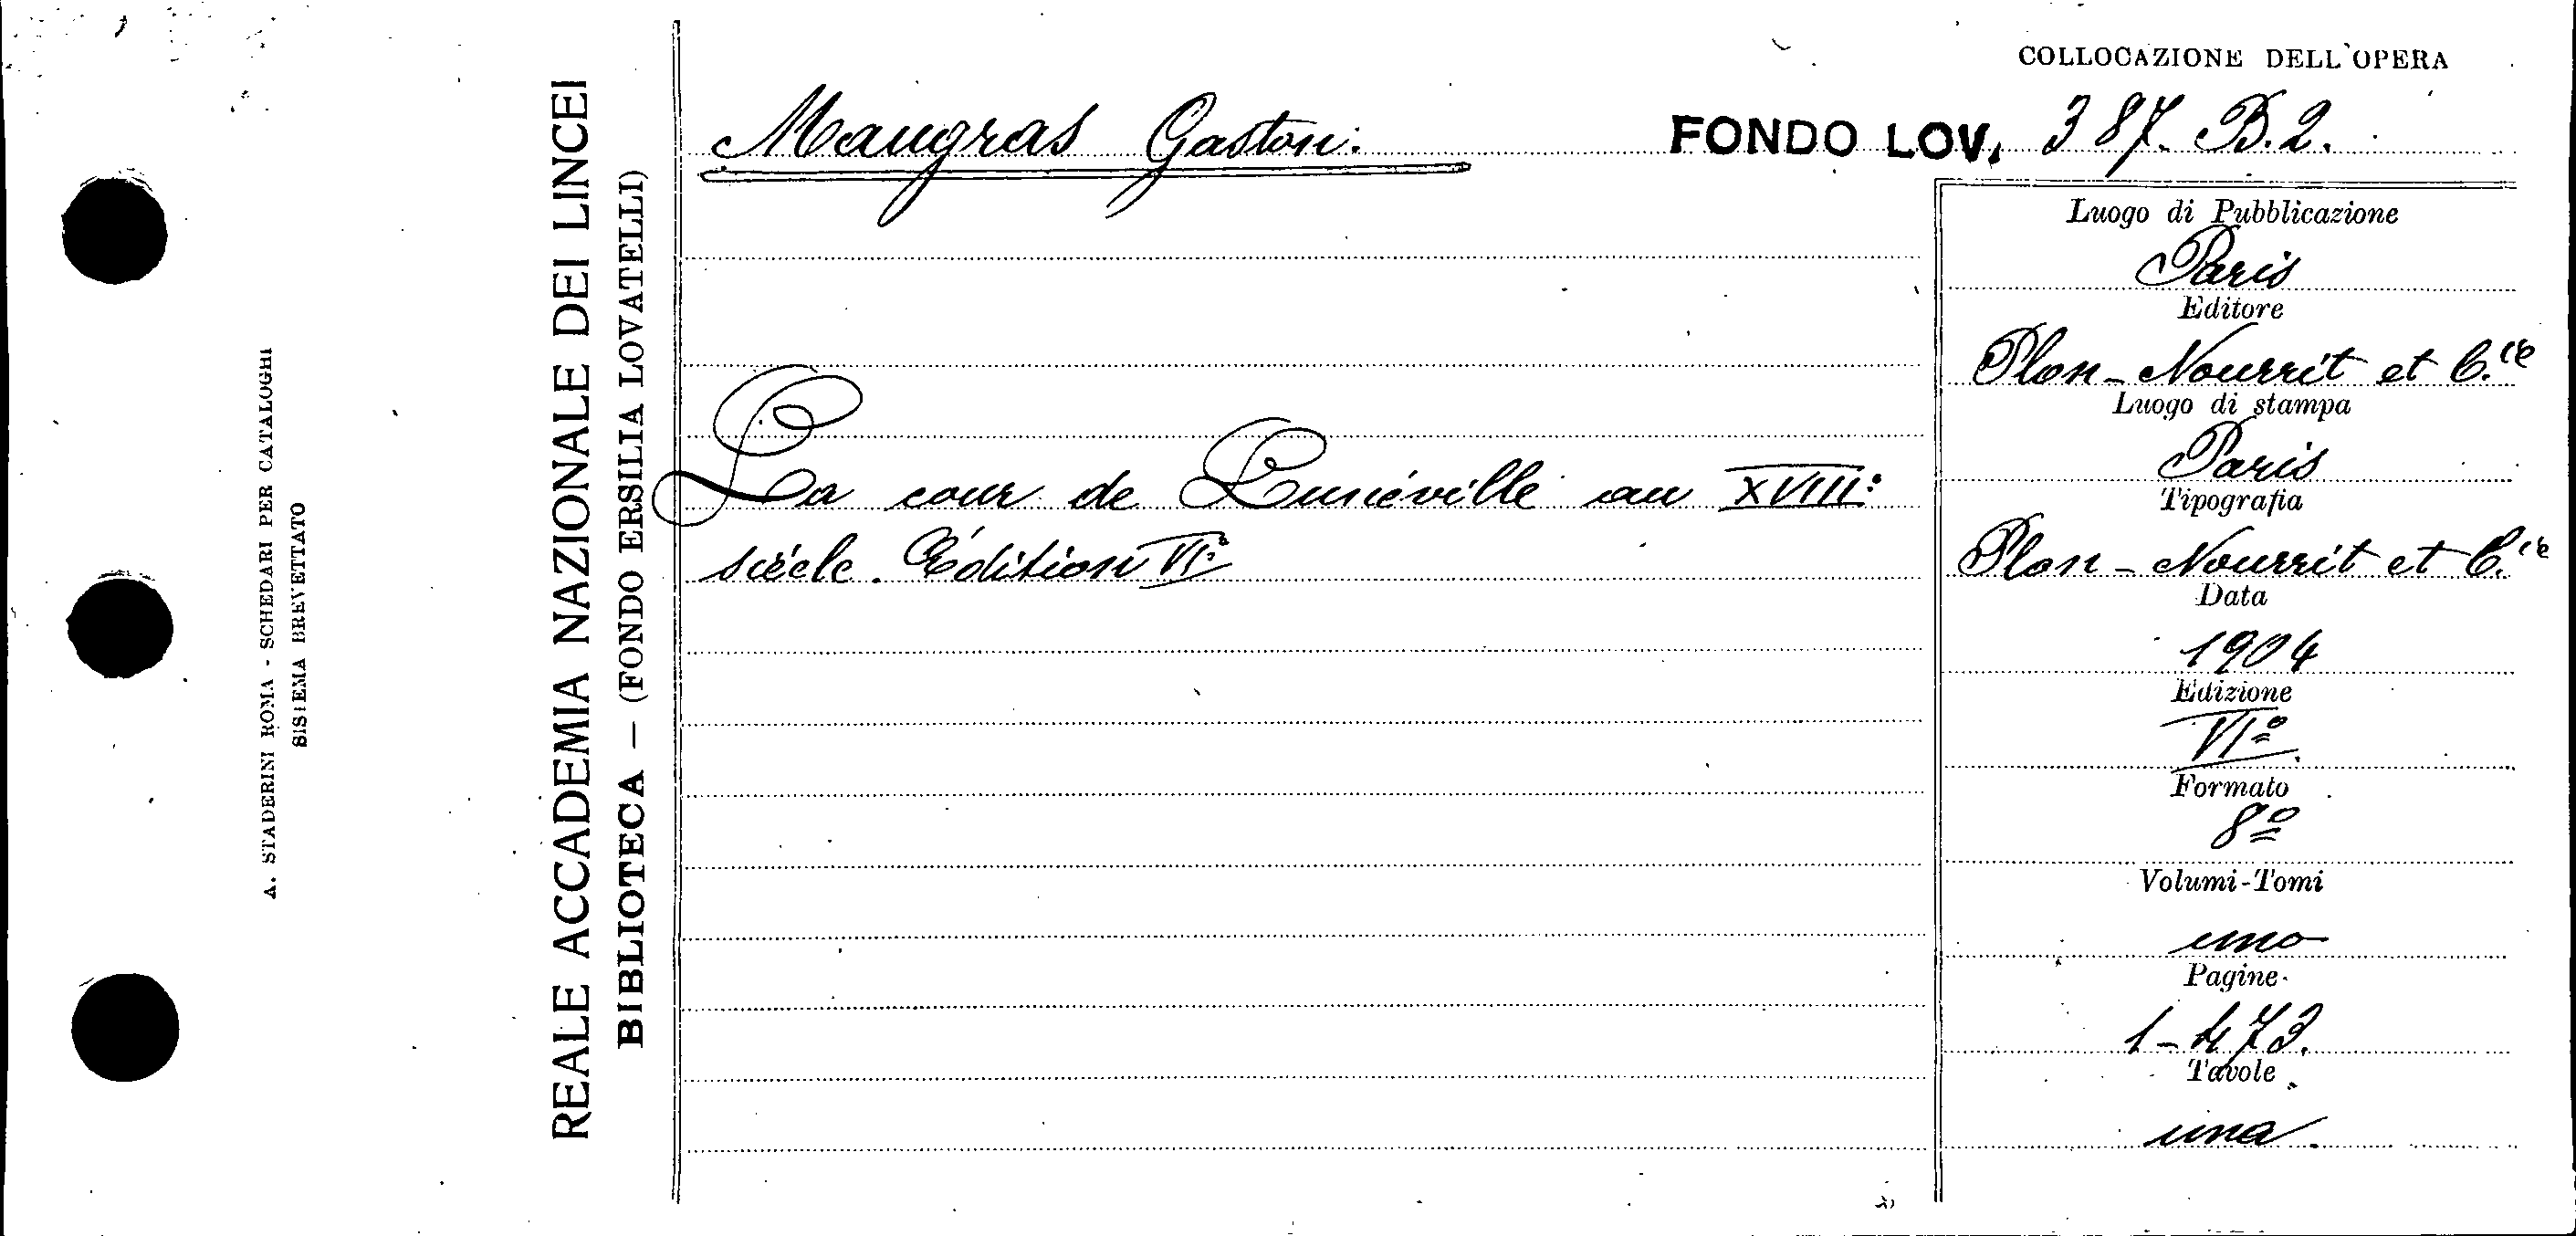 A. STADERINI ROMA - SCHEDARI PER CATALOGHI
SISTEMA BREVETTATO
REALE ACCADEMIA NAZIONALE DEI LINCEI
BIBLIOTECA — (FONDO ERSILIA LOVATELLI)
COLLOCAZIONE DELL'OPERA
Maugras Gaston.
FONDO LOV. 387. B.2.
La cour de Lunéville au XVIII:
siécle. Édition VIª
Luogo di Pubblicazione
Paris
Editore
Plon-Nourrit et C.ie
Luogo di stampa
Paris
Tipografia
Plon-Nourrit et C.ie
Data
1904
Edizione
VIª
Formato
8º
Volumi-Tomi
uno
Pagine
1-473.
Tavole
una.